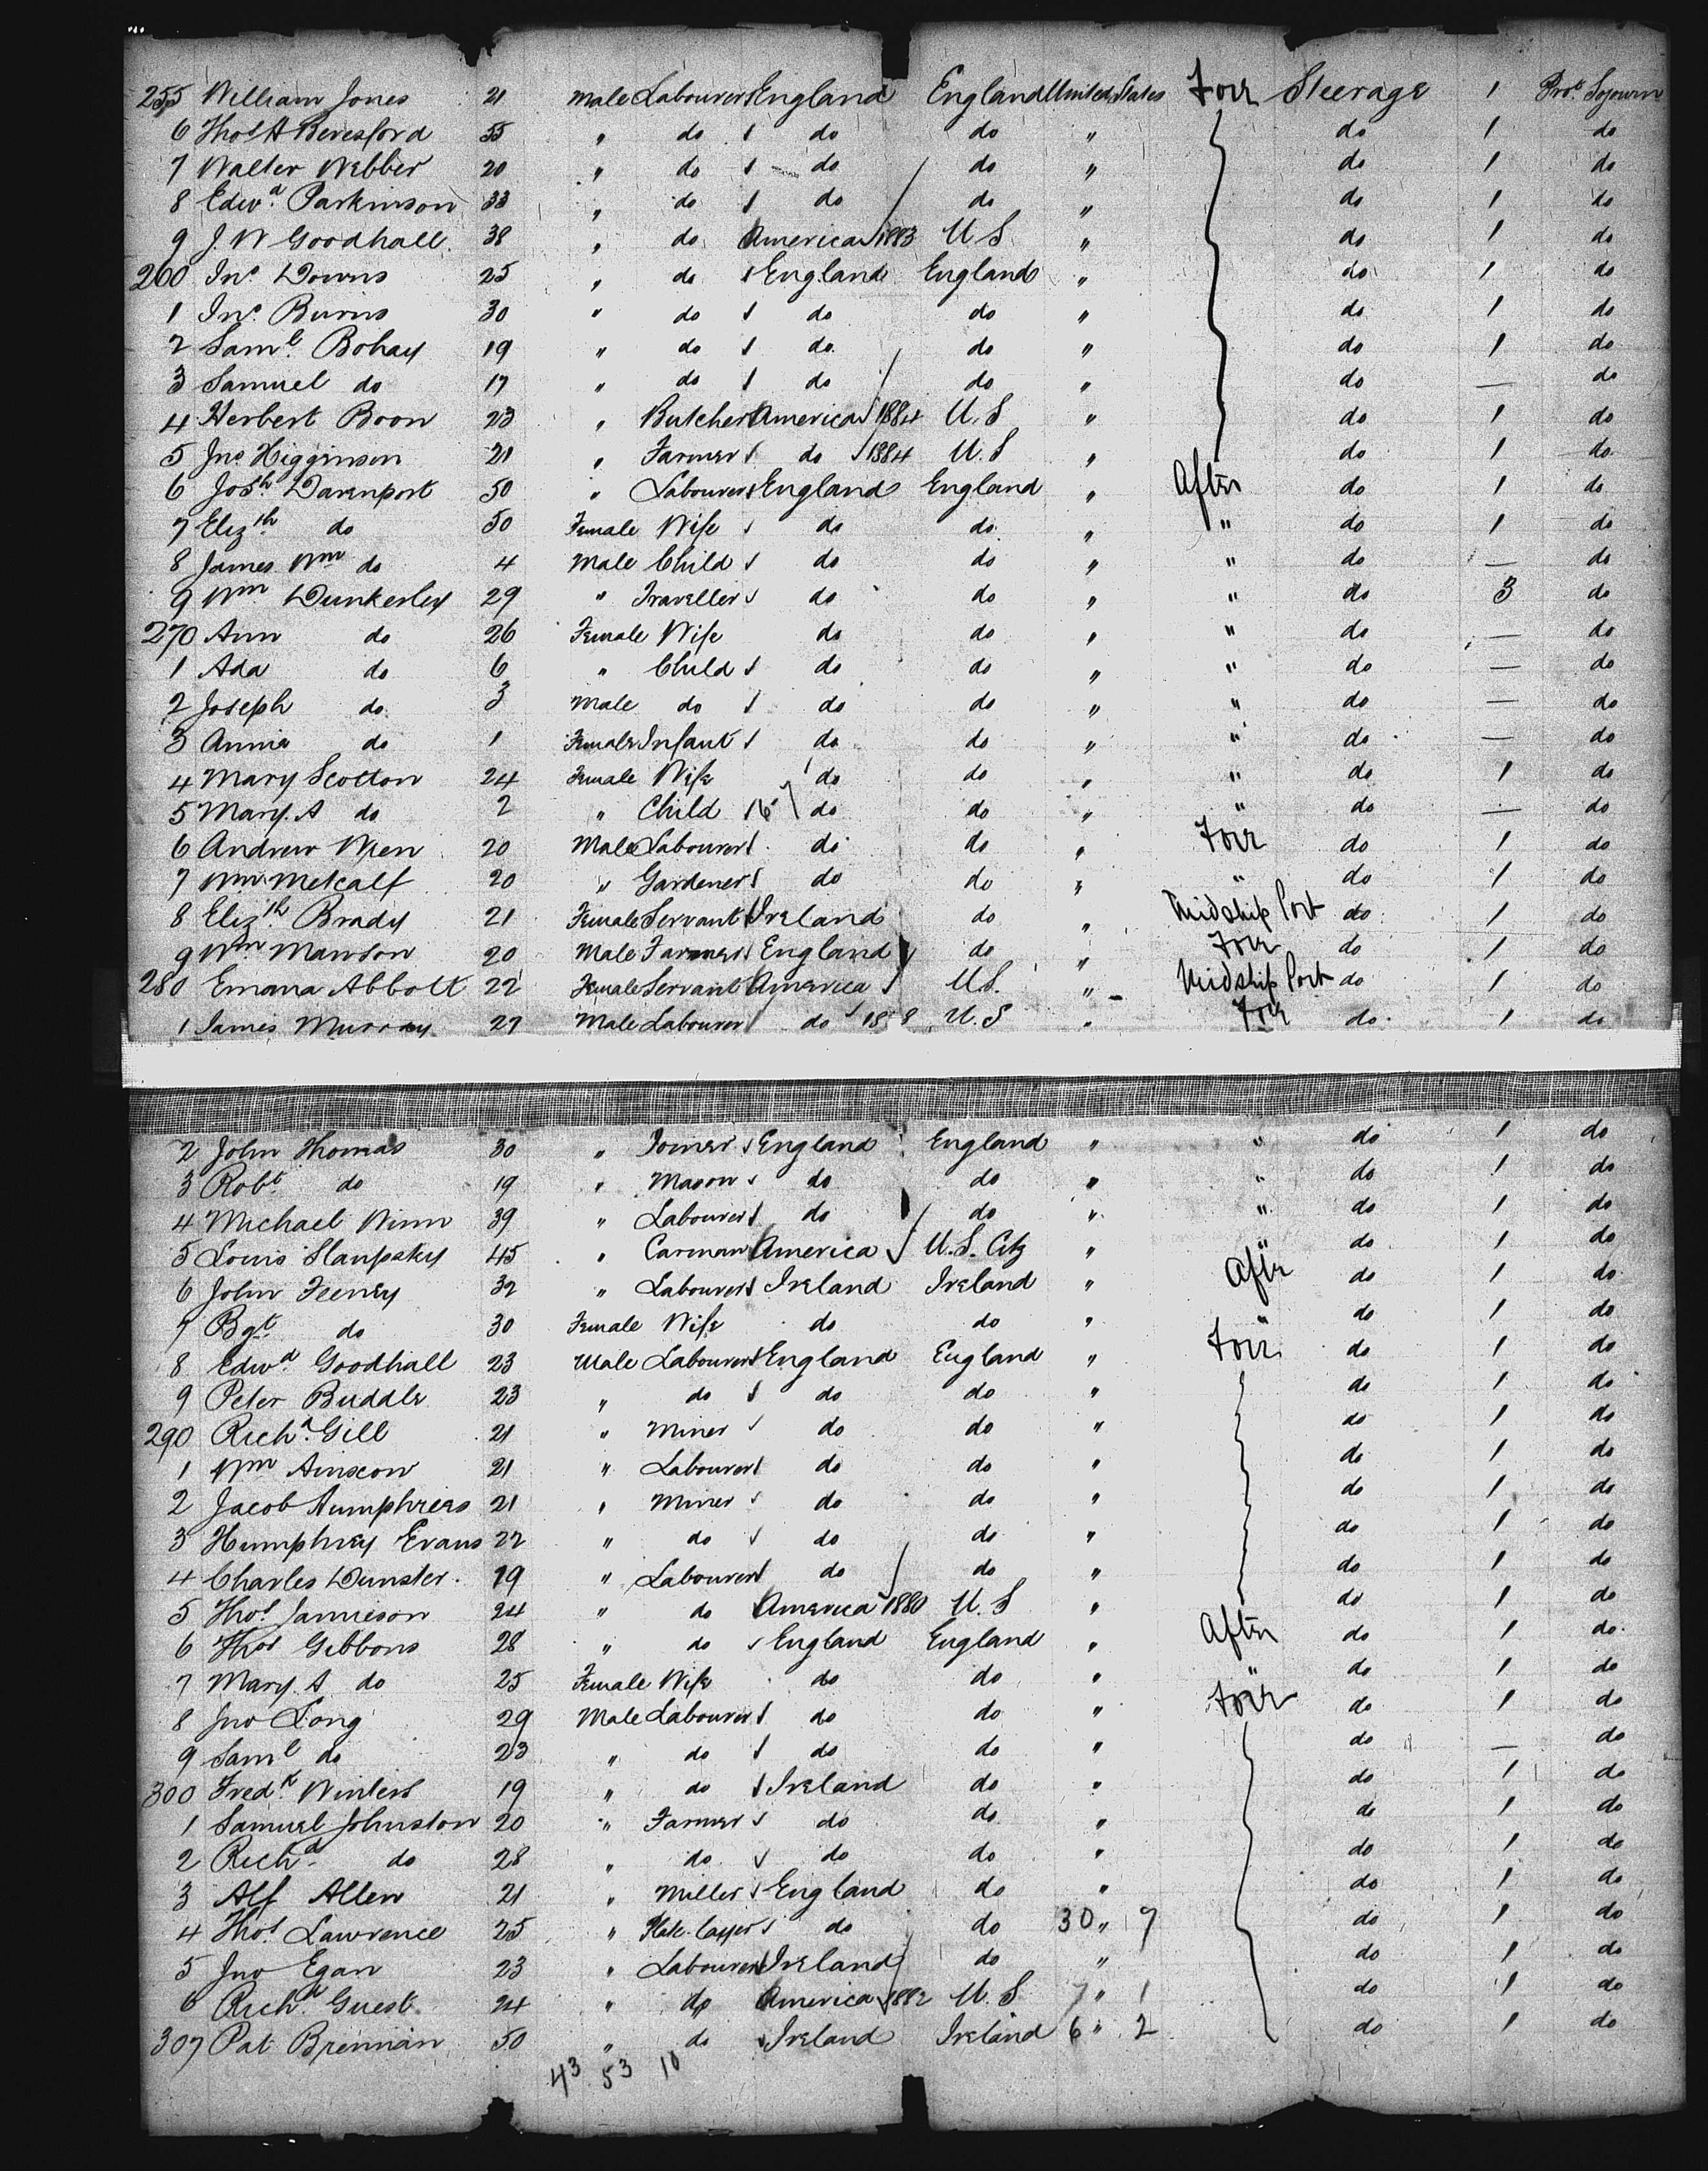 255 William Jones 21 Male Labourer England England United States Fore Steerage 1 Pro.t Sojourn
6 Thos A Beresford 55 " do do do " do 1 do
7 Walter Webber 20 " do do do " do 1 do
8 Edwd. Parkinson 33 " do do do " do 1 do
9 J. W Goodhall. 38 " do America 1883 U S. " do 1 do
260 Jno Downs 25 " do England England " do 1 do
1 Jno. Burns 30 " do do do " do 1 do
2 Saml. Bohay 19 " do do do " do 1 do
3 Samuel do 17 " do do do " do — do
4 Herbert Boon 23 " Butcher America 1884 U.S " do 1 do
5 Jno Higginson 21 " Farmer do 1884 U.S " do 1 do
6 Josh. Davenport 50 " Labourer England England " After do 1 do
7 Elizth. do 50 Female Wife do do " " do 1 do
8 James Wm do 4 Male Child do do " " do — do
9 Wm Dunkerley 29 " Traveller do do " " do 3 do
270 Ann do 26 Female Wife do do " " do — do
1 Ada do 6 " Child do do " " do — do
2 Joseph do 3 Male do do do " " do — do
3 Annie do 1 Female Infant do do " " do — do
4 Mary Scotton 24 Female Wife do do " " do 1 do
5 Mary. A do 2 " Child 16 do do " " do — do
6 Andrew Wren 20 Male Labourer do do " Fore do 1 do
7 Wm Metcalf 20 " Gardener do do " " do 1 do
8 Elizth Brady 21 Female Servant Ireland do " Midship Port do 1 do
9 Wm. Manson 20 Male Farmer England do " Fore do 1 do
280 Emma Abbott 22 Female Servant America U.S. " Midship Port do 1 do
1 James Murray 27 Male Labourer do U.S " Fore do 1 do
2 John Thomas 30 " Joiner England England " " do 1 do
3 Robt. do 19 " Mason do do " " do 1 do
4 Michael Winn 39 " Labourer do do " " do 1 do
5 Louis 45 " Carman America U.S. Citz " " do 1 do
6 John Feeney 32 " Labourer Ireland Ireland " Aftr do 1 do
7 Bgt. do 30 Female Wife do do " " do 1 do
8 Edwd. Goodhall 23 Male Labourer England England " Fore do 1 do
9 Peter Buddle 23 " do do do " do 1 do
290 Richd. Gill 21 " Miner do do " do 1 do
1 Wm Ainscow 21 " Labourer do do " do 1 do
2 Jacob Humphries 21 " Miner do do " do 1 do
3 Humphrey Evans 22 " do do do " do 1 do
4 Charles Dunster. 19 " Labourer do do " do 1 do
5 Thos Jamieson 24 " do America 1880 U.S " do 1 do
6 Thos Gibbons 28 " do England England " After do 1 do
7 Mary. A do 25 Female Wife do do " " do 1 do
8 Jno Long 29 Male Labourer do do " Fore do 1 do
9 Saml do 23 " do do do " do — do
300 Fredk. Winters 19 " do Ireland do " do 1 do
1 Samuel Johnston 20 " Farmer do do " do 1 do
2 Richd. do 28 " do do do " do 1 do
3 Alf Allen 21 " Miller England do " do 1 do
4 Thos. Lawrence 25 " Plate-layer do do 30 " 7 do 1 do
5 Jno Egan 23 " Labourer Ireland do " do 1 do
6 Richd. Guest. 24 " do America 1882 U.S 7 " 1 do 1 do
307 Pat Brennan 50 " do Ireland Ireland 6 " 2 do 1 do
43 53 10